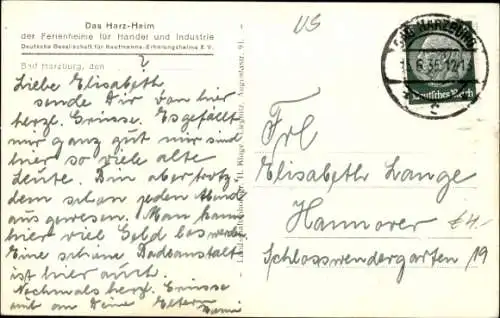 Das Harz-Heim
der Ferienheime für Handel und Industrie
Deutsche Gesellschaft für Kaufmanns-Erholungsheime E.V.
Bad Harzburg, den
Liebe Elisabeth
sende Dir von hier
herzl. Grüsse. Es gefällt
mir ganz gut nur sind
hier so viele alte
Leute. Bin aber trotz-
dem schon jeden Abend
aus gewesen. Man kann
hier viel Geld los werden
Eine schöne Badeanstalt
ist hier auch.
Nochmals herzl. Grüsse
auch an Deine Eltern
BAD HARZBURG
Deutsches Reich
Frl
Elisabeth Lange
Hannover
Schlosswendergarten 19